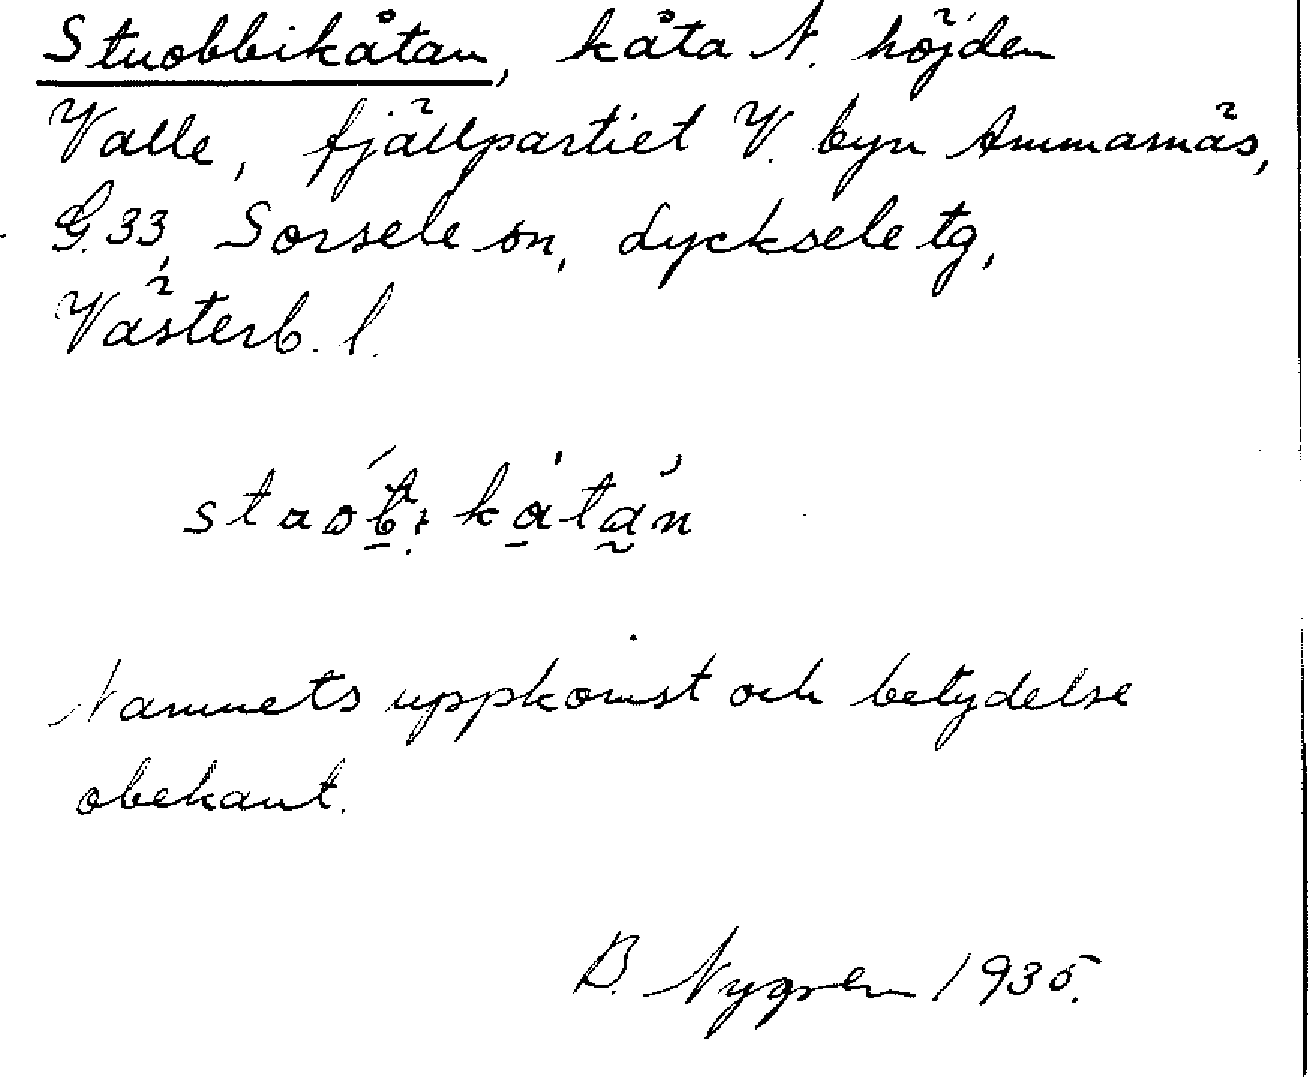 Stuobbikåtan, kåta N. höjden
Valle, fjällpartiet V. byn Ammarnäs,
G.33, Sorsele sn, Lycksele tg,
Västerb. l.
Namnets uppkomst och betydelse
obekant.
B. Nygren 1935.